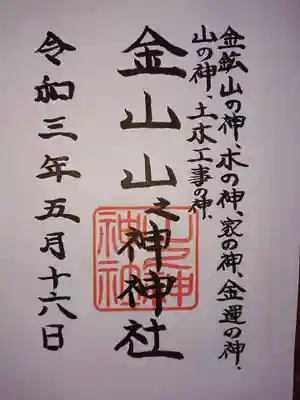 金鉱山の神、木の神、家の神、金運の神、
山の神、土木工事の神、
金山山之神神社
山之神
神社
令和三年五月十六日